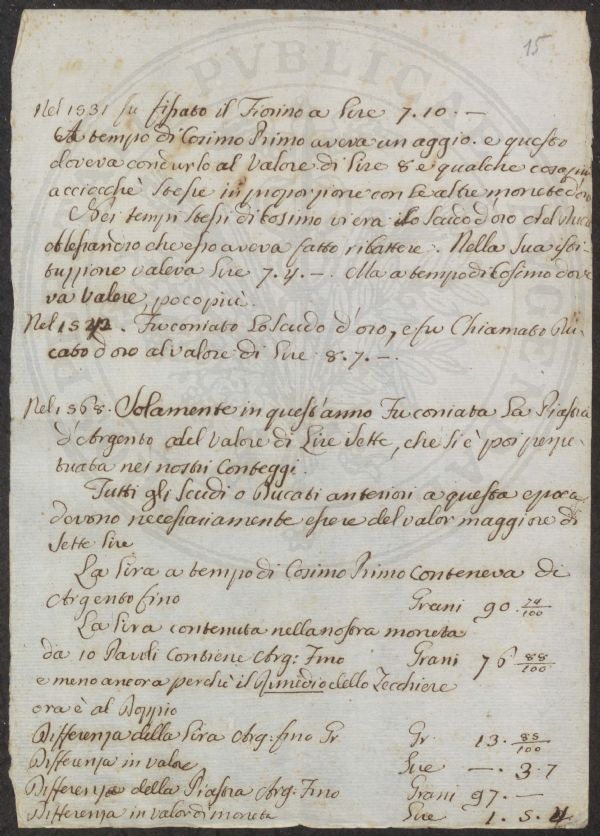 15
Nel 1531 fu fissato il Fiorino a Lire 7.10.—
A tempo di Cosimo Primo aveva un aggio. e questo
doveva condurlo al Valore di Lire 8 e qualche cosa più
acciocchè stesse in proporzione con le altre monete d'oro
Nei tempi stessi di Cosimo vi era lo Scudo d'oro del Duca
Alessandro che esso aveva fatto ribattere. Nella sua isti-
tuzzione valeva Lire 7.4.—. Ma a tempo di Cosimo dove-
va valere, poco più.
Nel 1542. Fu coniato Lo Scudo d'oro, e fu Chiamato Du-
cato d'oro al valore di Lire 8.7.—.
Nel 1568. Solamente in quest'anno Fu coniata La Piastra
d'Argento del Valore di Lire Sette, che si è poi perpe-
tuata nei nostri Conteggi.
Tutti gli Scudi o Ducati anteriori a questa epoca
devono necessariamente essere del valor maggiore di
Sette Lire
La Lira a tempo di Cosimo Primo conteneva di
Argento fino Grani 90 74/100
La Lira contenuta nella nostra moneta
da 10 Pauli Contiene Arg: Fino Grani 76 88/100
e meno ancora perchè il Rimedio dello Zecchiere
ora è al Doppio
Differenza della Lira Arg: fino Gr Gr. 13. 85/100
Differenza in valore Lire —. 3.7
Differenza della Piastra Arg: Fino Grani 97.—
Differenza in valor di moneta Lire 1.5.4
PVBLICA